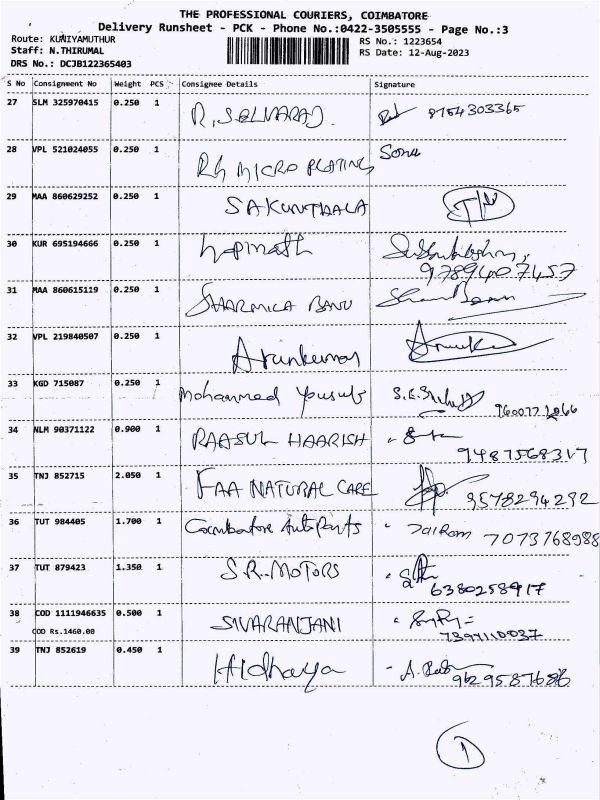 THE PROFESSIONAL COURIERS, COIMBATORE
Delivery Runsheet - PCK - Phone No.:0422-3505555 - Page No.:3
Route: KUNIYAMUTHUR RS No.: 1223654
Staff: N.THIRUMAL RS Date: 12-Aug-2023
DRS No.: DCJB122365403
S No Consignment No Weight PCS Consignee Details Signature
27 SLM 325970415 0.250 1 R. SELVARAJ 8754303365
28 VPL 521024055 0.250 1 MICRO PLATING Sonu
29 MAA 860629252 0.250 1 SAKUNTHALA
30 KUR 695194666 0.250 1 Gopinath
9789407457
31 MAA 860615119 0.250 1 SHARMILA BANU
32 VPL 219840507 0.250 1 Arunkumar
33 KGD 715087 0.250 1 Mohammed Yousuf
34 NLM 90371122 0.900 1 RAASUL HAARISH
9487568317
35 TNJ 852715 2.050 1 FAA NATURAL CARE 9578294292
36 TUT 984405 1.700 1 Coimbatore Auto Parts Jai Ram 7073768988
37 TUT 879423 1.350 1 S.R. MOTORS
6380258917
38 COD 1111946635 0.500 1 SIVARANJANI
COD Rs.1460.00
39 TNJ 852619 0.450 1 Hidhaya
1